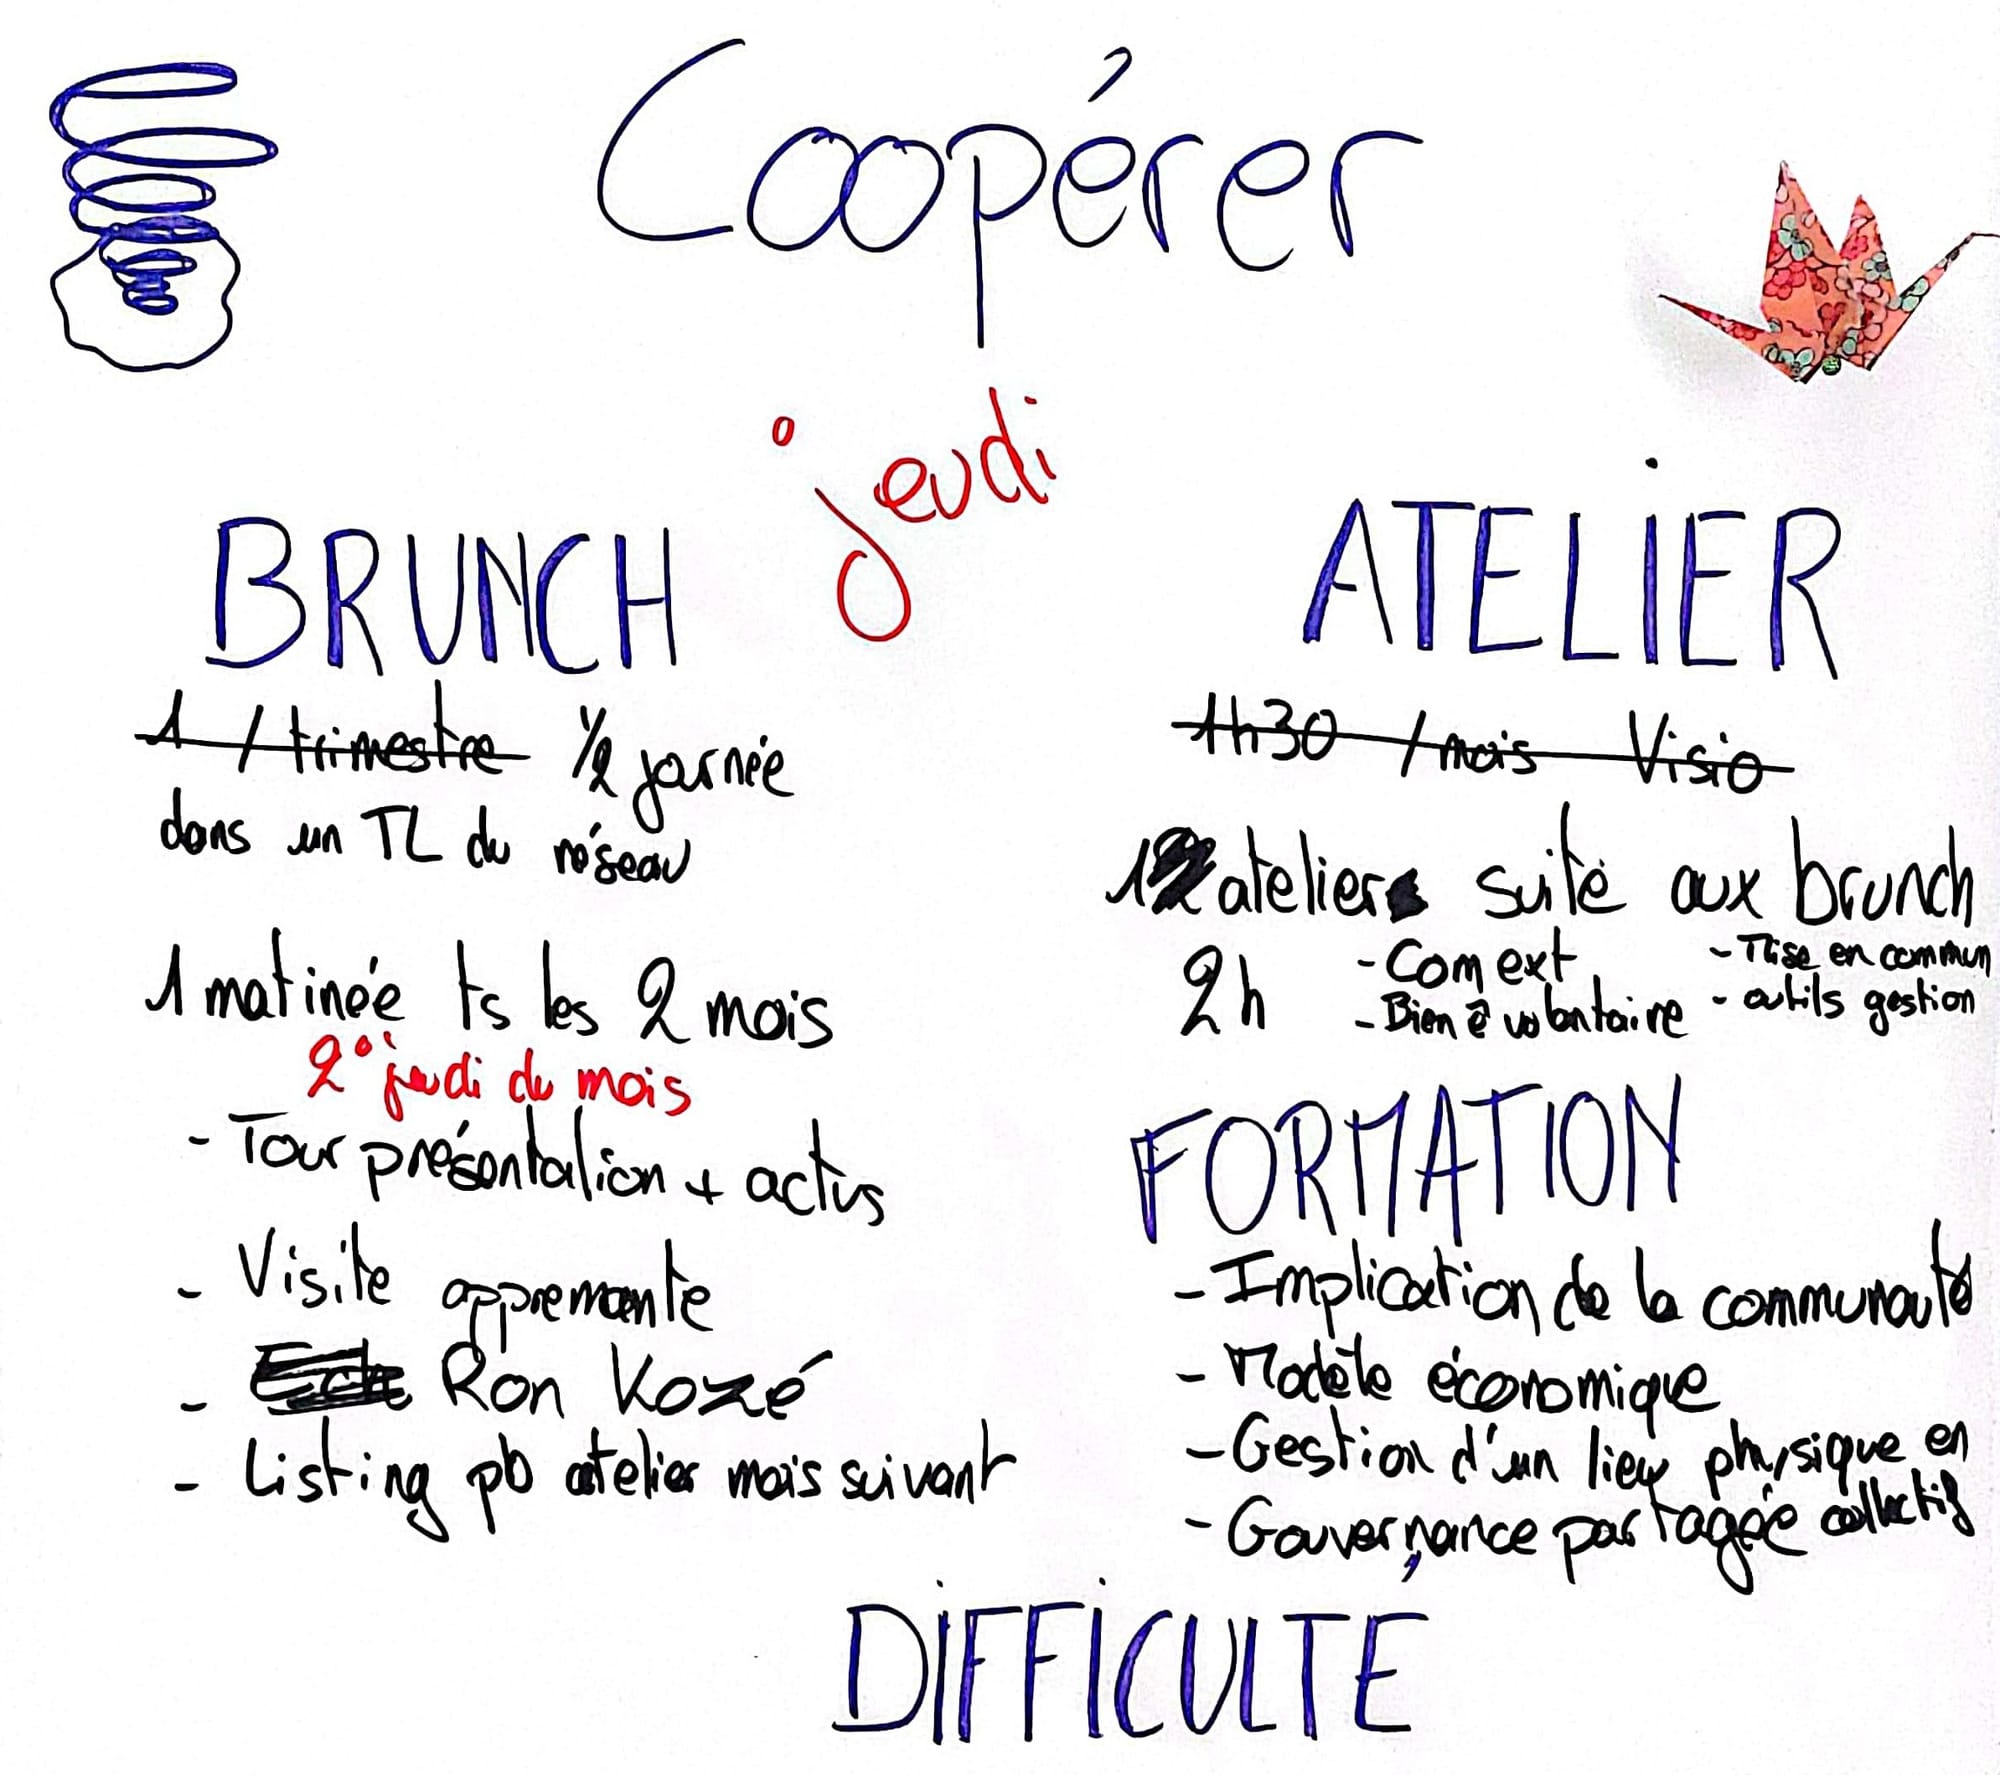 Coopérer
jeudi
BRUNCH
1 / trimestre 1/2 journée
dans un TL du réseau
1 matinée ts les 2 mois
2° jeudi du mois
- Tour présentation + actus
- Visite apprenante
- Ech Ron Kozé
- Listing pb atelier mois suivant
ATELIER
1h30 / mois Visio
1 atelier suite aux brunch
2h
- Com ext
- Bien ê volontaire
- Mise en commun
- outils gestion
FORMATION
- Implication de la communauté
- Modèle économique
- Gestion d'un lieu physique en
collectif
- Gouvernance partagée
DIFFICULTÉ